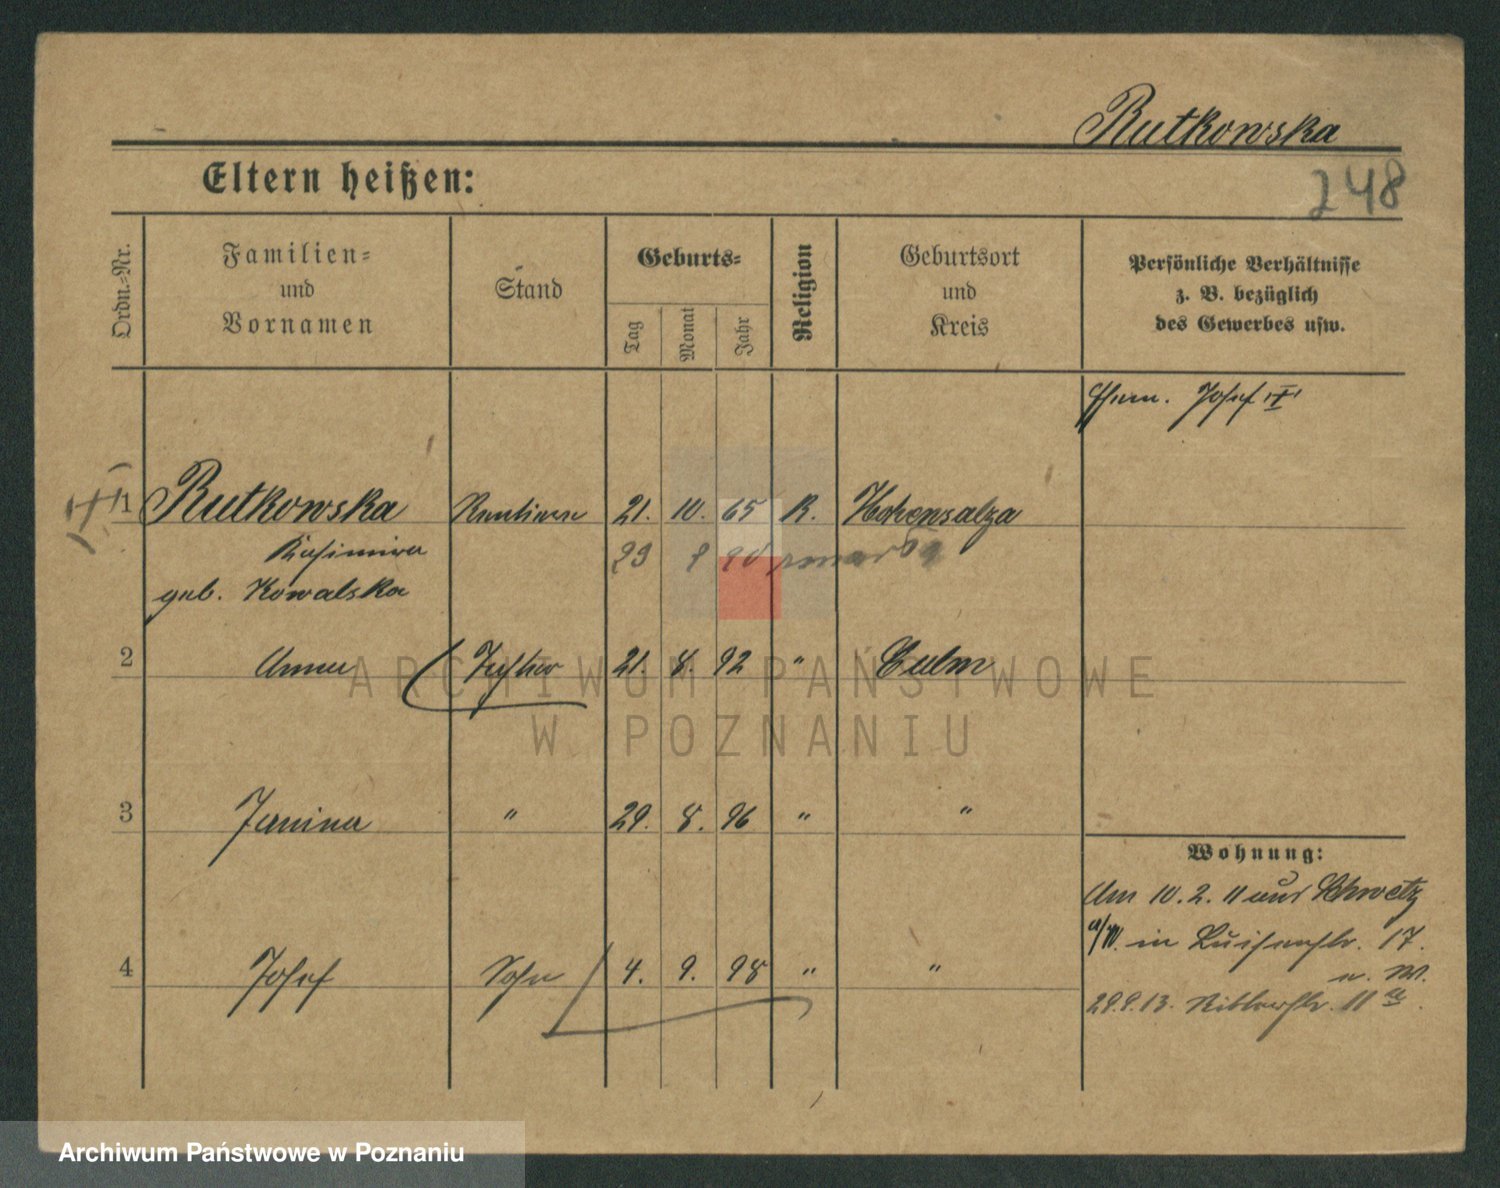 Rutkowska
248
Eltern heißen:
Ordn.-Nr.
Familien-
und
Vornamen
Stand
Geburts-
Tag
Monat
Jahr
Religion
Geburtsort
und
Kreis
Persönliche Verhältnisse
z. B. bezüglich
des Gewerbes usw.
Ehem. Josef
1 Rutkowska Rentiere 21. 10. 65 R. Hohensalza
Kasimira 29
geb. Kowalska
2 Anna Tochter 21. 8. 92 " Culm
3 Janina " 29. 8. 96 " "
Wohnung:
Am 10. 2. 11 aus Schwetz
a/W. in Luisenstr. 17.
4 Josef Sohn 4. 9. 98 " "
u. W.
29.9.13. Ritterstr. 11
ARCHIWUM PAŃSTWOWE
W POZNANIU
Archiwum Państwowe w Poznaniu